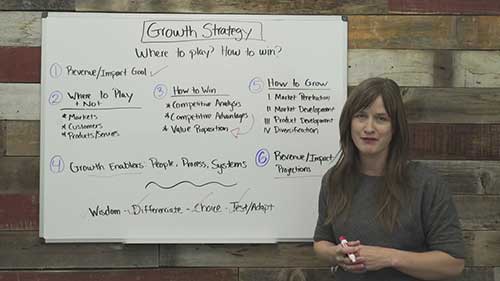 Growth Strategy
Where to play? How to win?
1 Revenue/Impact Goal
2 Where to Play
+ Not
* Markets
* Customers
* Products/Services
3 How to Win
* Competitive Analysis
* Competitive Advantages
* Value Proposition
5 How to Grow
I Market Penetration
II Market Development
III Product Development
IV Diversification
4 Growth Enablers: People, Process, Systems
6 Revenue/Impact
Projections
Wisdom - Differentiate - Choice - Test/Adapt